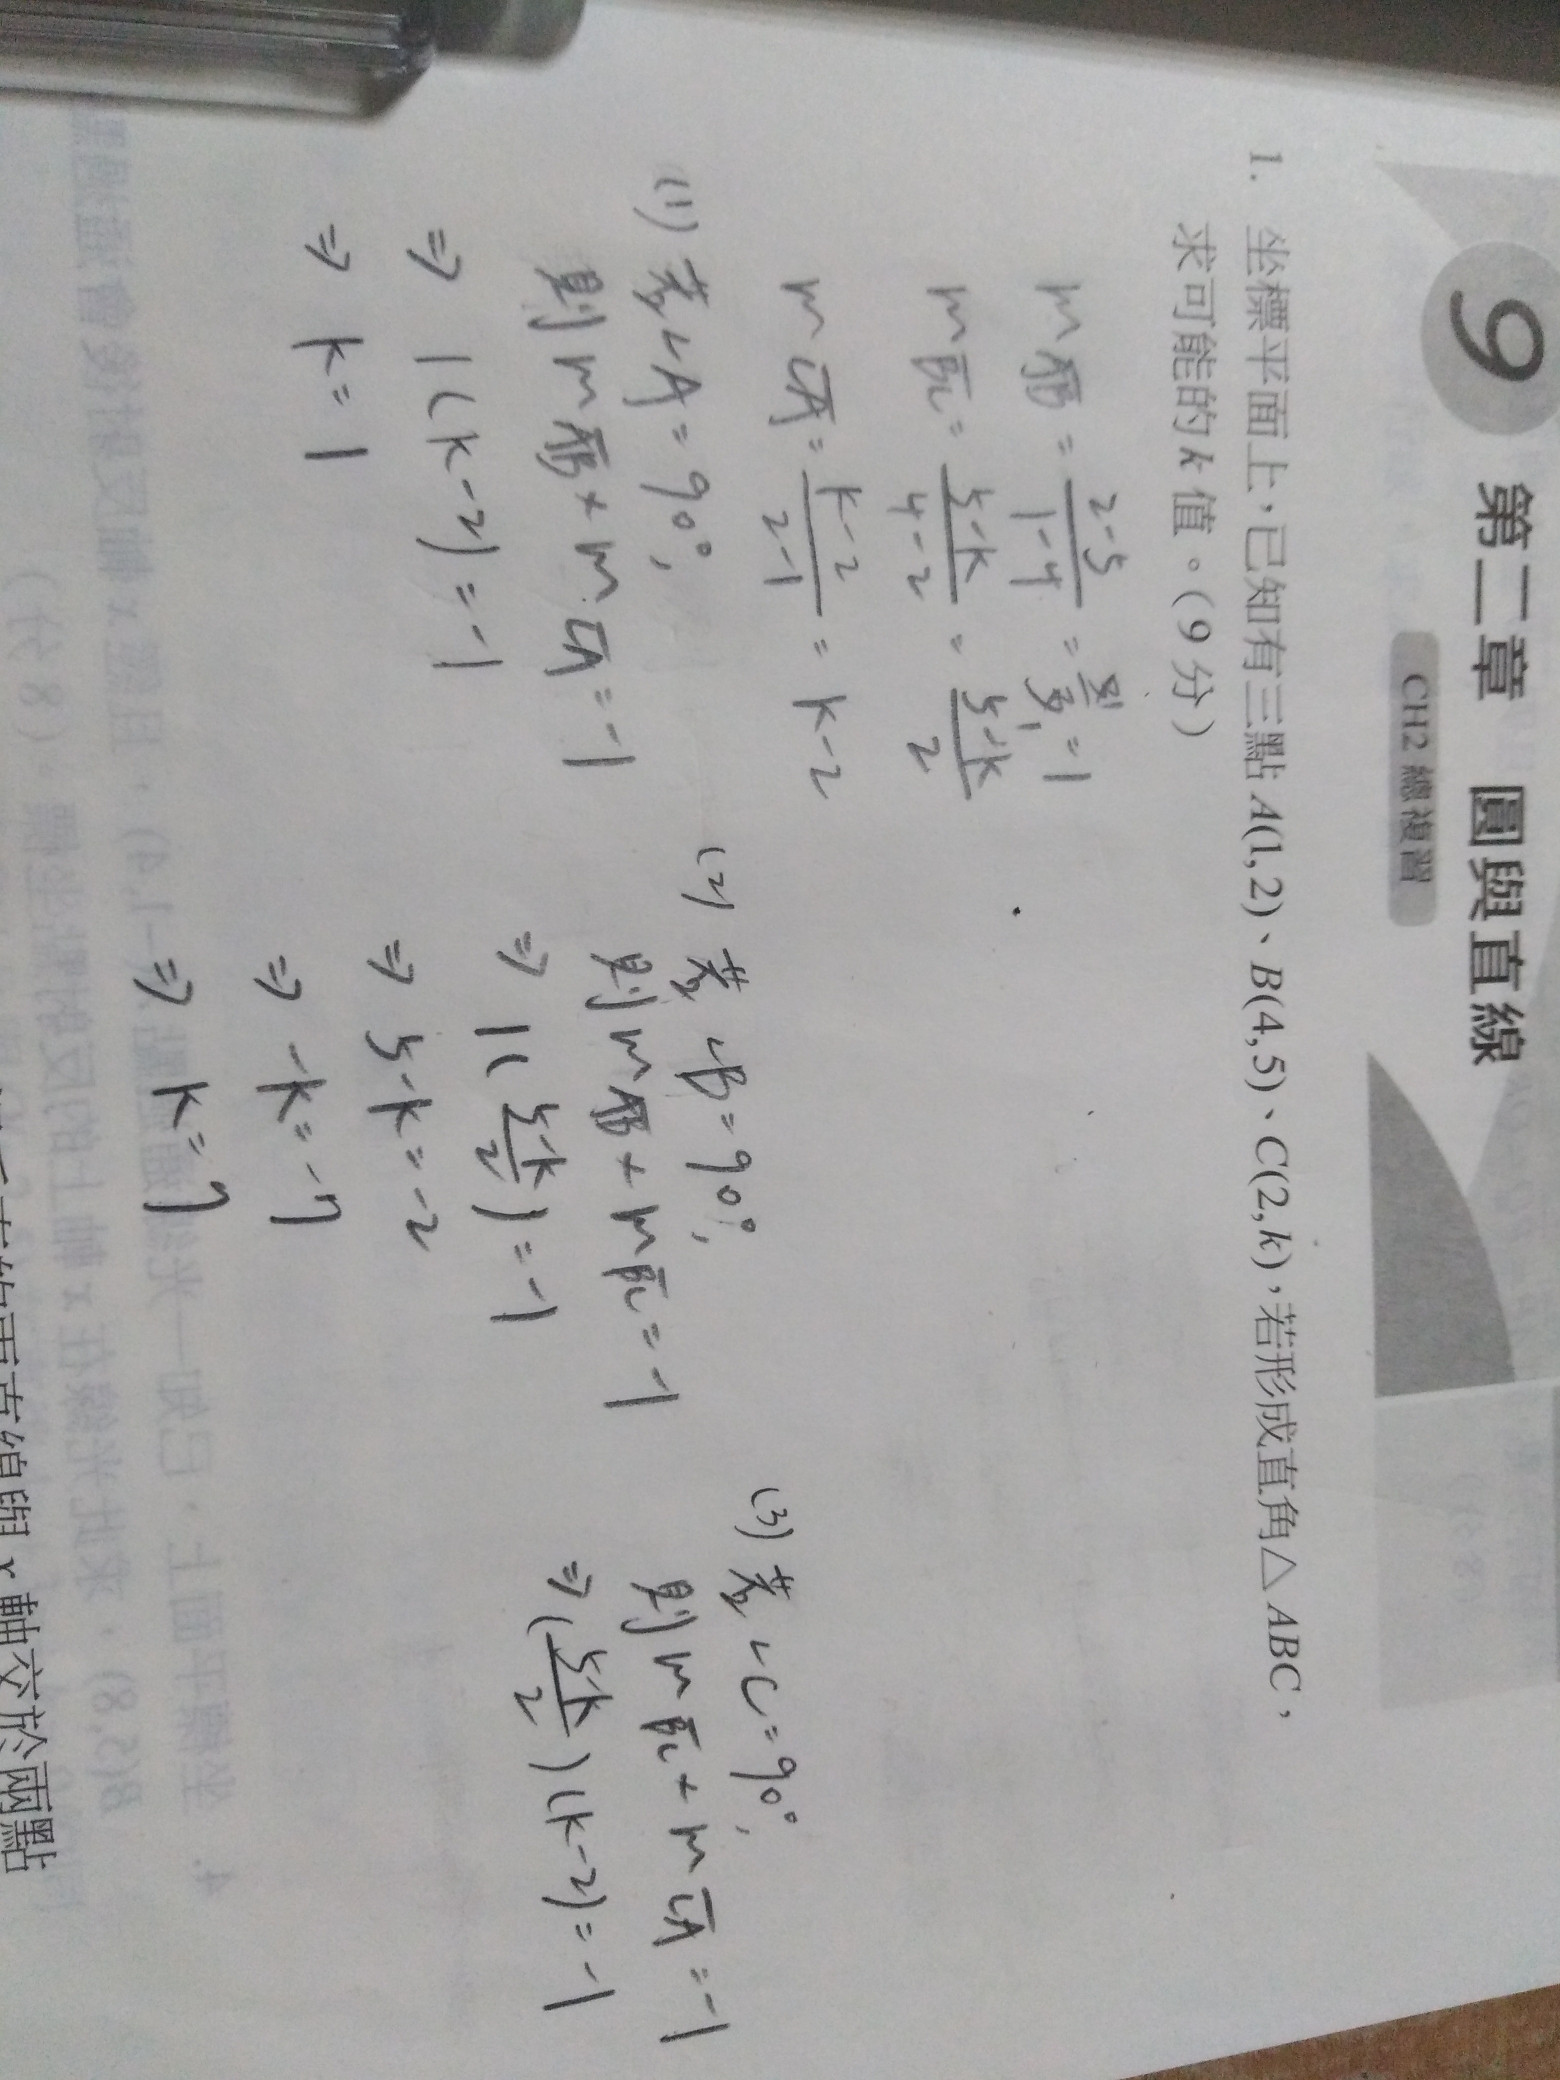 9 第二章 圓與直線
CH2 總複習
1. 坐標平面上，已知有三點A(1,2)、B(4,5)、C(2,k)，若形成直角△ABC，
求可能的k值。(9分)
m AB = 2-5/1-4 = -3/-3 = 1
m BC = 5-k/4-2 = 5-k/2
m CA = k-2/2-1 = k-2
(1) 若∠A=90°,
則 m AB × m CA = -1
⇒ 1(k-2) = -1
⇒ k = 1
(2) 若∠B=90°,
則 m AB × m BC = -1
⇒ 1(5-k/2) = -1
⇒ 5-k = -2
⇒ -k = -7
⇒ k = 7
(3) 若∠C=90°,
則 m BC × m CA = -1
⇒ (5-k/2)(k-2) = -1
軸交於兩點